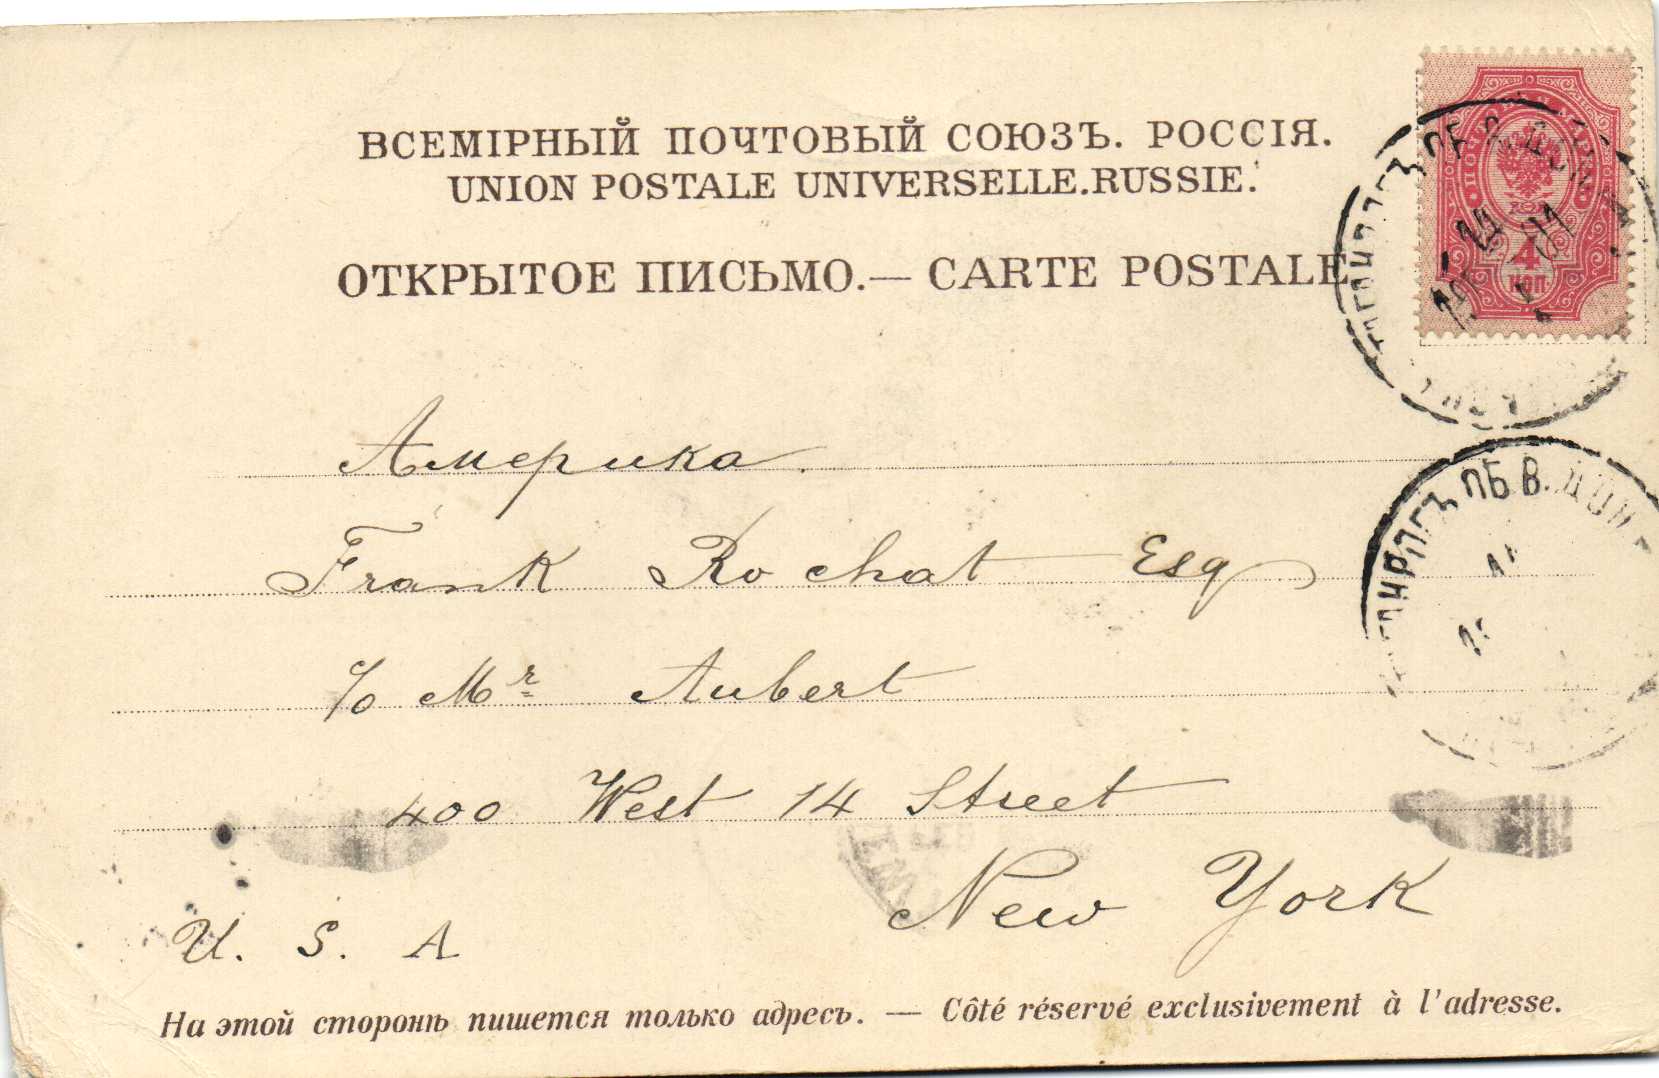 ВСЕМІРНЫЙ ПОЧТОВЫЙ СОЮЗЪ. РОССІЯ.
UNION POSTALE UNIVERSELLE.RUSSIE.
ОТКРЫТОЕ ПИСЬМО.— CARTE POSTALE
4
КОП.
Америка.
Frank Rochat Esq
c/o Mr Aubert
400 West 14 Street
New York
U. S. A
На этой сторонѣ пишется только адресъ. — Côté réservé exclusivement à l'adresse.